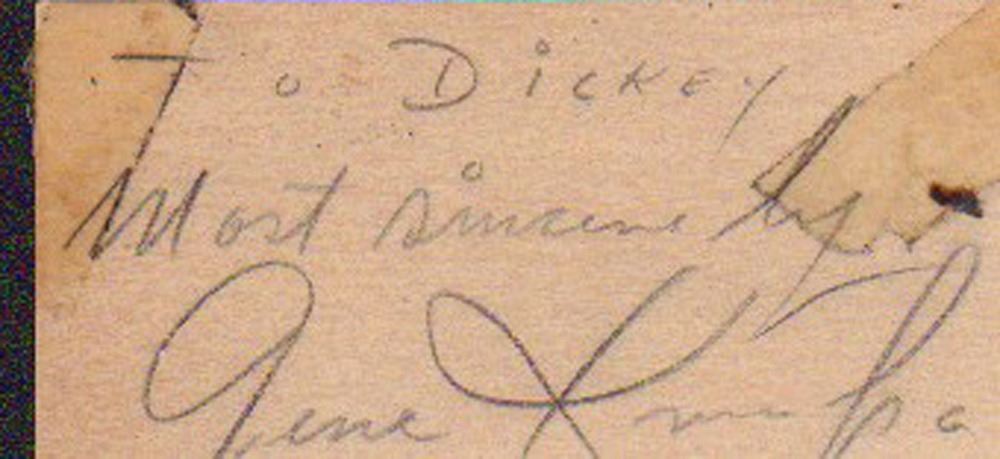 To Dickey
Most sincere
Gene Krupa